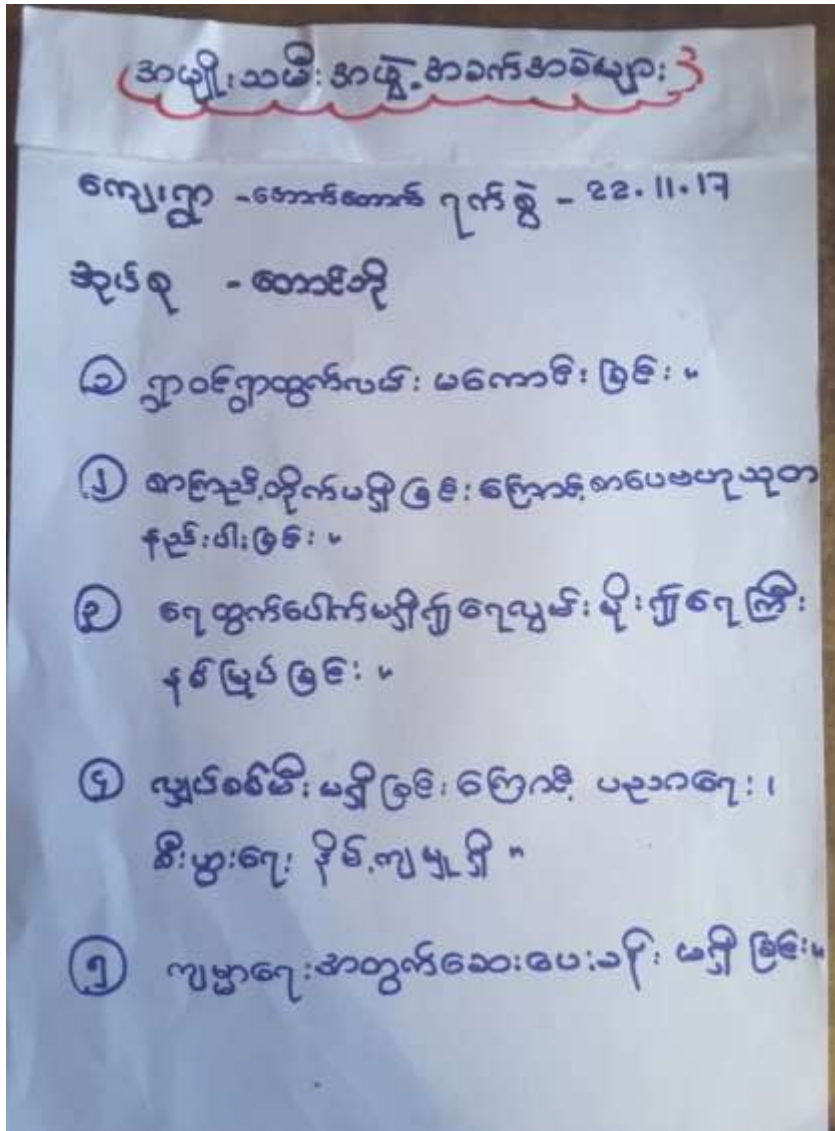 အမျိုးသမီးအဖွဲ့အခက်အခဲများ
ကျေးရွာ - အောက်တောက် ရက်စွဲ - 22.11.17
အုပ်စု - တောင်ဘို
၁ ရွာဝင်ရွာထွက်လမ်း မကောင်းခြင်း။
၂ စာကြည့်တိုက်မရှိခြင်းကြောင့် စာပေဗဟုသုတ
နည်းပါးခြင်း။
၃ ရေထွက်ပေါက်မရှိ၍ ရေလွှမ်းမိုး၍ ရေကြီး
နစ်မြုပ်ခြင်း။
၄ လျှပ်စစ်မီး မရှိခြင်းကြောင့် ပညာရေး၊
စီးပွားရေး နိမ့်ကျမှုရှိ။
၅ ကျမ္မာရေးအတွက်ဆေးပေးခန်း မရှိခြင်း။